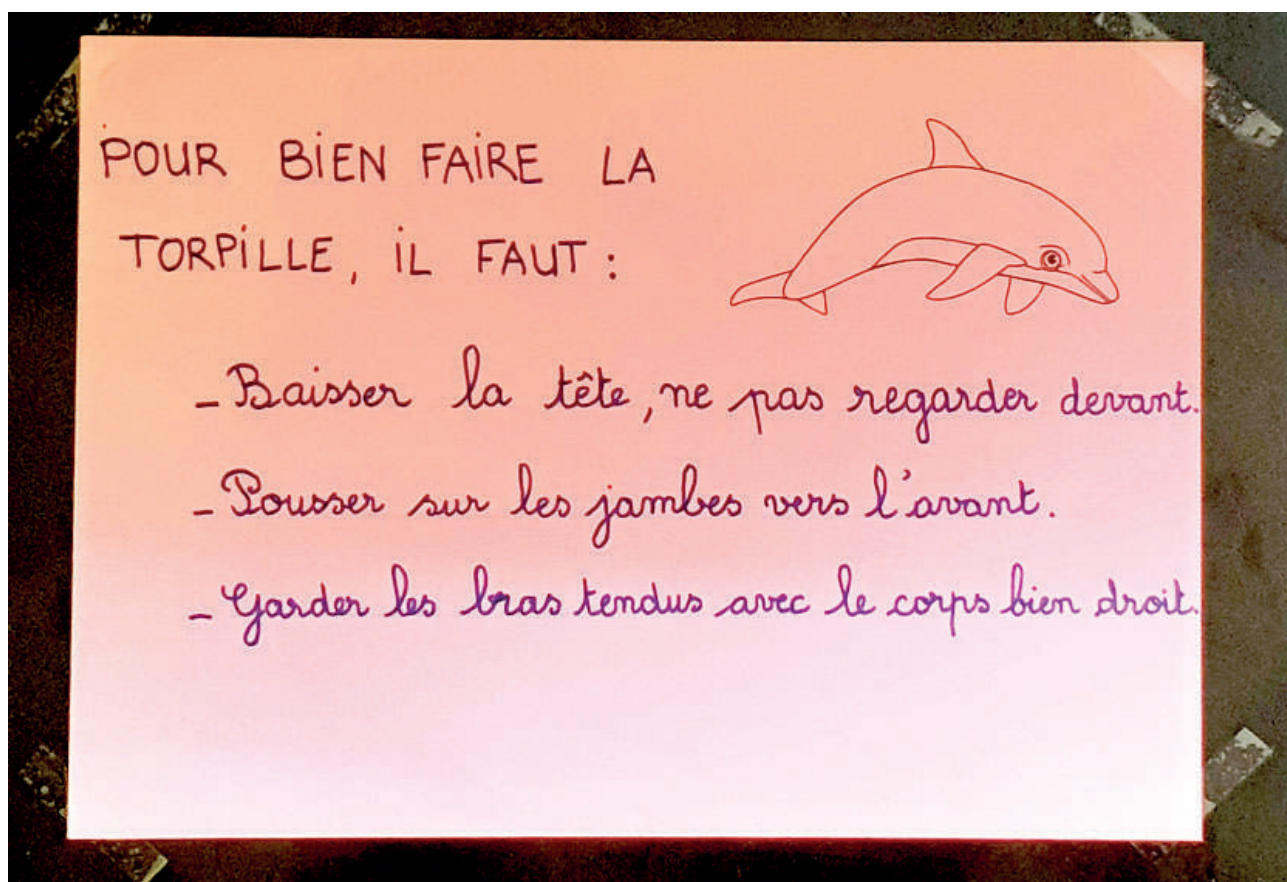 POUR BIEN FAIRE LA
TORPILLE, IL FAUT :
- Baisser la tête, ne pas regarder devant.
- Pousser sur les jambes vers l'avant.
- Garder les bras tendus avec le corps bien droit.